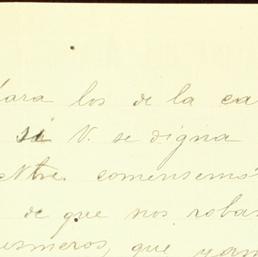 para los de la ca
si V. se digna
Ntre. comensems
de que nos robas
usmeros, que yam